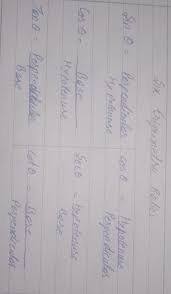 Six Trigonometric Ratios
Sin θ = Perpendicular / Hypotenuse    Cosec θ = Hypotenuse / Perpendicular
Cos θ = Base / Hypotenuse    Sec θ = Hypotenuse / Base
Tan θ = Perpendicular / Base    Cot θ = Base / Perpendicular